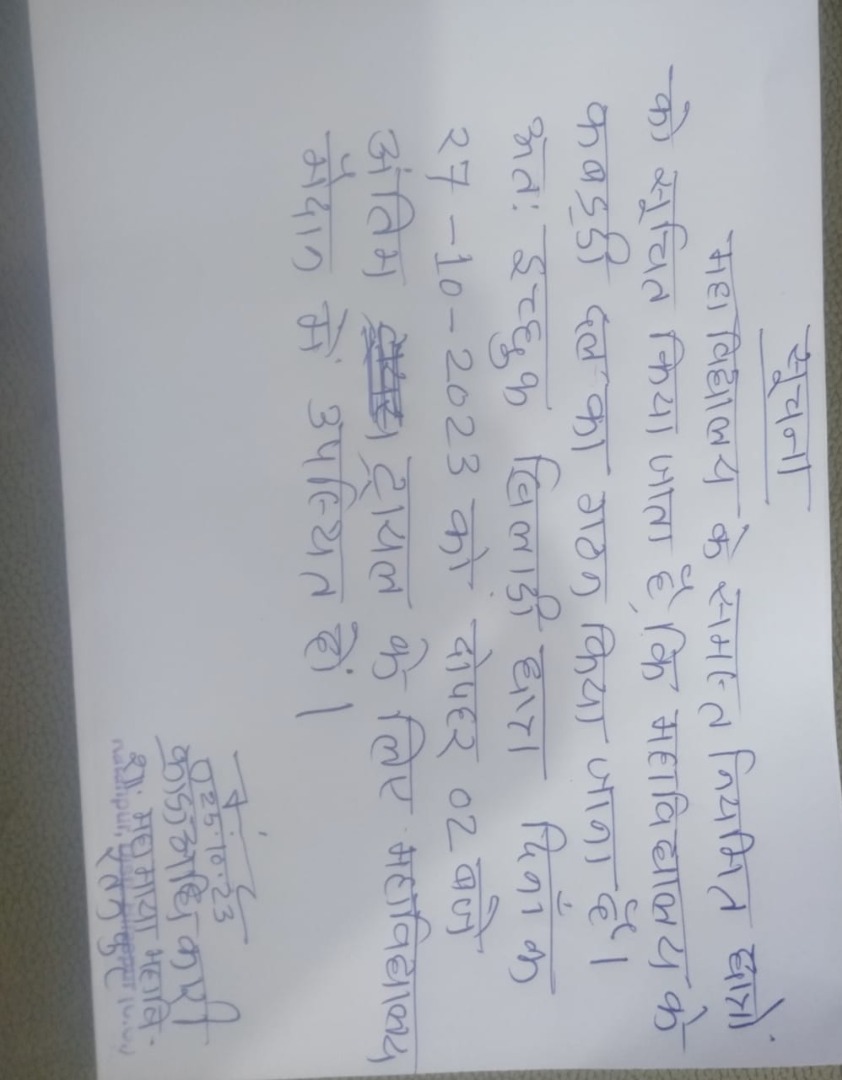 सूचना
महाविद्यालय के समस्त नियमित छात्रों
को सूचित किया जाता है, कि महाविद्यालय के
कबड्डी दल का गठन किया जाना है।
अतः इच्छुक खिलाडी छात्रा दिनांक
27-10-2023 को दोपहर 02 बजे
अंतिम ट्रायल के लिए महाविद्यालय
मैदान में उपस्थित हों।
25.10.23
क्रीडा अधिकारी
शा. महामाया महावि.
रतनपुर